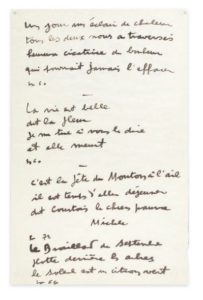 Un jour un éclair de chaleur
tous les deux nous a traversés
heureuse cicatrice du bonheur
qui pourrait jamais l'effacer
—
La vie est belle
dit la fleur
je me tue à vous le dire
et elle meurt
—
c'est la fête du Mouton à l'ail
il est temps d'aller déjeuner
dit
Michèle
Le Brouillard de Septembre
derrière les arbres
le Soleil est un citron vert